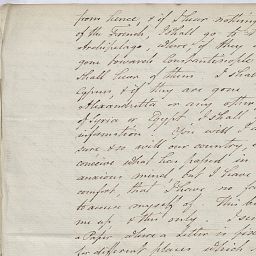 from hence, & if I hear nothing
of the French, I shall go to
Archipelago, where, if they
gone towards Constantinople
shall hear of them I sha
Cyprus, & if they are gone
Alexandretta or any other
of Syria or Egypt, I shall
information. You will, I a
sure & so will our country,
conceive what has passed in
anxious mind, but I have
comfort, that I have no fa
to accuse myself of. This be
me up, & this only. I se
a Paper where a Letter is
for different places which